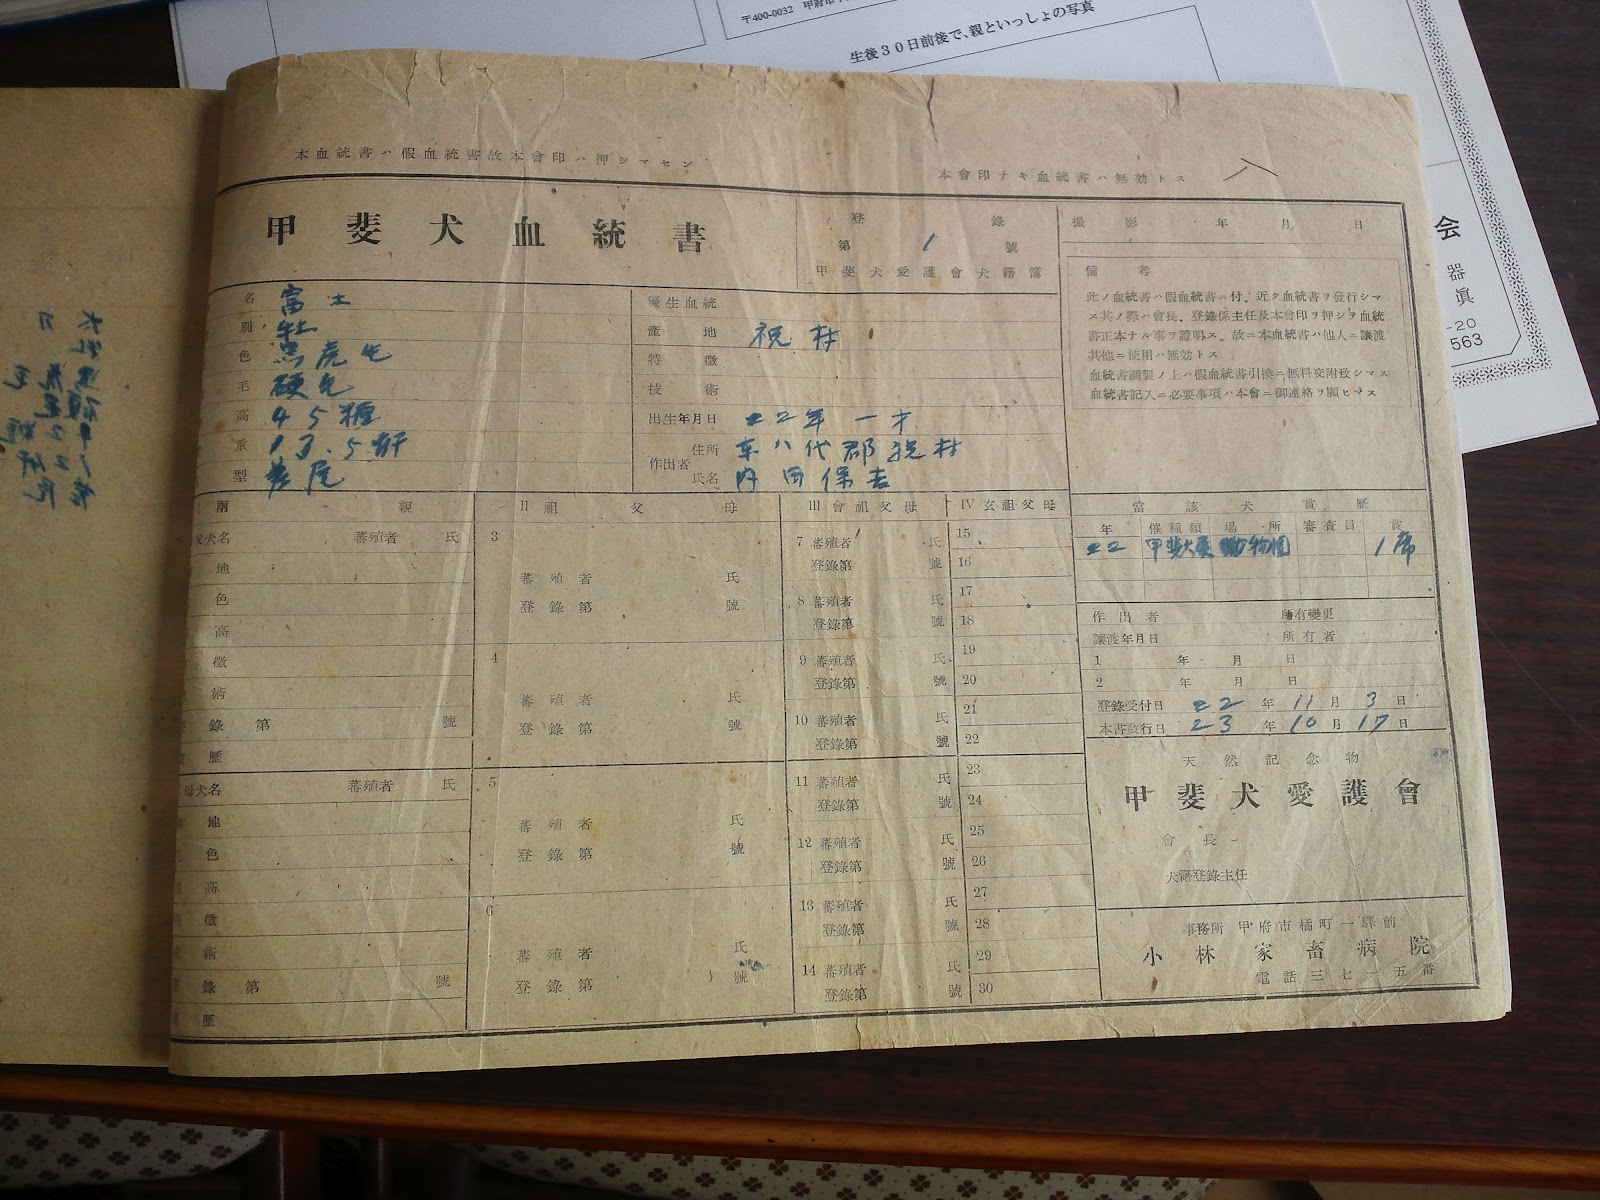 〒400-0032 甲府市
生後30日前後で、親といっしょの写真
会
器
眞
-20
563
本血統書ハ假血統書故本會印ハ押シマセン
本會印ナキ血統書ハ無効トス
甲斐犬血統書
登錄
第 1 號
甲斐犬愛護會犬籍簿
撮影 年 月 日
備考
此ノ血統書ハ假血統書ニ付、近ク血統書ヲ發行シマ
ス其ノ際ハ會長、登錄係主任及本會印ヲ押シヲ血統
書正本ナル事ヲ證明ス、故ニ本血統書ハ他人ニ讓渡
其他ニ使用ハ無効トス
血統書調製ノ上ハ假血統書引換ニ無料交附致シマス
血統書記入ニ必要事項ハ本會ニ御連絡ヲ願ヒマス
名 富士
別 牡
色 黒虎毛
毛 硬毛
高 45糎
重 13.5瓩
型 差尾
優生血統
產地 祝村
特徵
技術
出生年月日 22年 一才
作出者 住所 東八代郡祝村
氏名 内田保吉
兩親
II 祖父母
III 會祖父母
IV 玄祖父母
犬名 蕃殖者 氏
地
色
高
徵
術
錄第 號
歷
母犬名 蕃殖者 氏
地
色
高
徵
術
錄第 號
歷
3
蕃殖者 氏
登錄第 號
4
蕃殖者 氏
登錄第 號
5
蕃殖者 氏
登錄第 號
6
蕃殖者 氏
登錄第 號
7 蕃殖者 氏
登錄第 號
8 蕃殖者 氏
登錄第 號
9 蕃殖者 氏
登錄第 號
10 蕃殖者 氏
登錄第 號
11 蕃殖者 氏
登錄第 號
12 蕃殖者 氏
登錄第 號
13 蕃殖者 氏
登錄第 號
14 蕃殖者 氏
登錄第 號
15
16
17
18
19
20
21
22
23
24
25
26
27
28
29
30
當該犬賞歷
年 催種類 場所 審査員 賞
22 甲斐犬展 動物園 1席
作出者 所有變更
讓渡年月日 所有者
1 年 月 日
2 年 月 日
登錄受付日 22年 11月 3日
本書發行日 23年 10月 17日
天然記念物
甲斐犬愛護會
會長
犬籍登錄主任
事務所 甲府市橘町一驛前
小林家畜病院
電話三七一五番